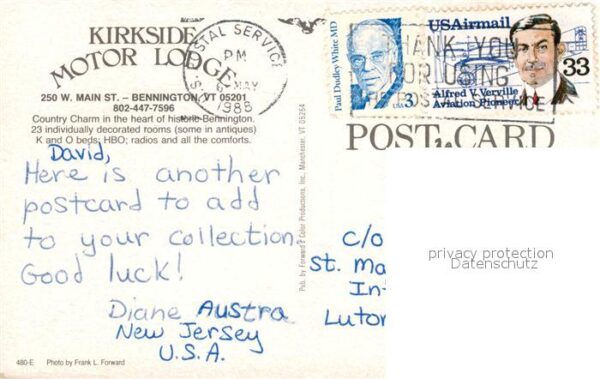 KIRKSIDE
MOTOR LODGE
250 W. MAIN ST. – BENNINGTON, VT 05201
802-447-7596
Country Charm in the heart of historic Bennington.
23 individually decorated rooms (some in antiques)
K and O beds; HBO; radios and all the comforts.
POSTAL SERVICE
PM
MAY
1988
Paul Dudley White MD
3
USAirmail
33
Alfred V. Verville
Aviation Pioneer
THANK YOU
FOR USING
POSTCARD
David,
Here is another
postcard to add
to your collection.
Good luck!
Diane Austra
New Jersey
U.S.A.
Pub. by Forward's Color Productions, Inc., Manchester, VT 05254
c/o
St. Ma
In
Luton
privacy protection
Datenschutz
480-E Photo by Frank L. Forward